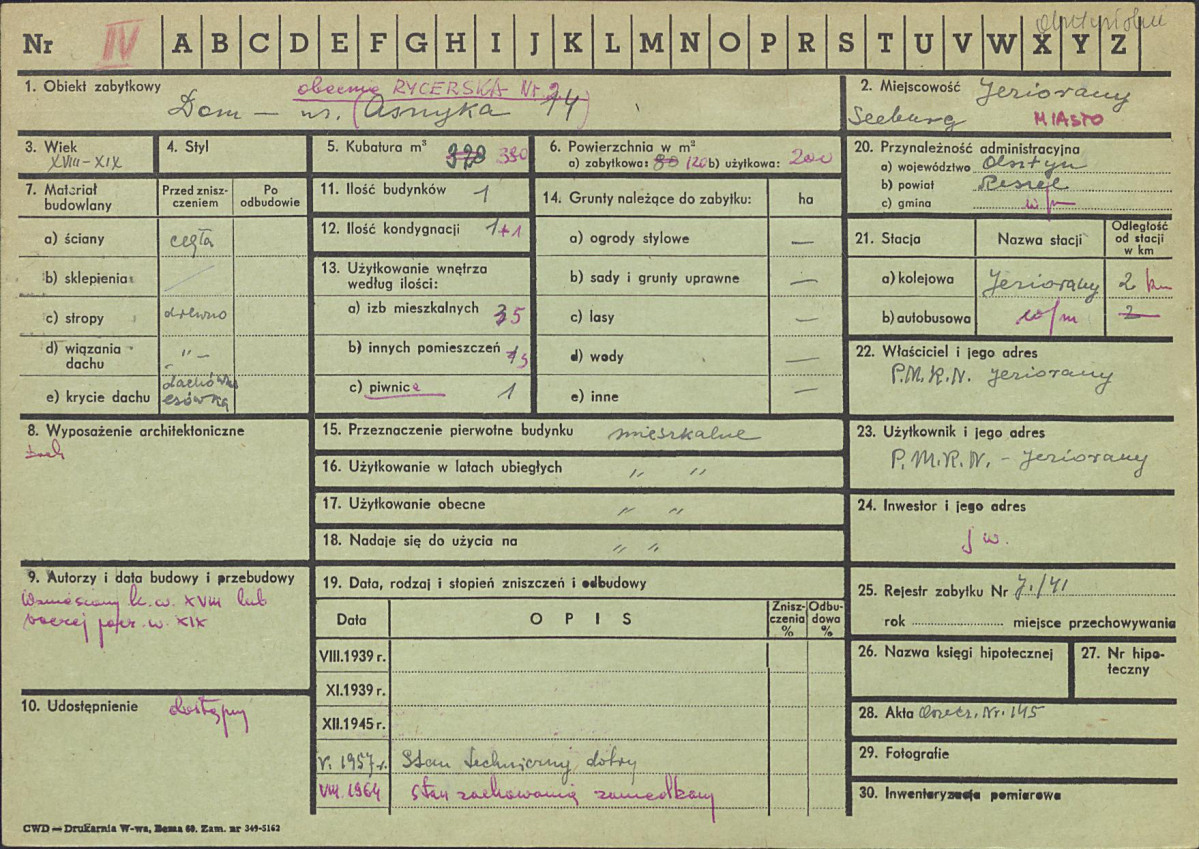 Nr IV A B C D E F G H I J K L M N O P R S T U V W X Y Z
1. Obiekt zabytkowy
obecnie RYCERSKA Nr. 2
Dom — ul. (Asnyka 14)
2. Miejscowość Jeziorany
Seeburg MIASTO
3. Wiek
XVIII-XIX
4. Styl
5. Kubatura m³ 320 350
6. Powierzchnia w m²
a) zabytkowa: 80 120 b) użytkowa: 200
20. Przynależność administracyjna
a) województwo Olsztyn
b) powiat Reszel
c) gmina w/m
7. Materiał budowlany
Przed znisz-
czeniem
Po
odbudowie
a) ściany cegła
b) sklepienia
c) stropy drewno
d) wiązania
dachu „ —
e) krycie dachu dachówka
esówka
11. Ilość budynków 1
12. Ilość kondygnacji 1+1
13. Użytkowanie wnętrza
według ilości:
a) izb mieszkalnych 3 5
b) innych pomieszczeń 1 5
c) piwnice 1
14. Grunty należące do zabytku: ha
a) ogrody stylowe —
b) sady i grunty uprawne —
c) lasy —
d) wody —
e) inne —
21. Stacja
Nazwa stacji
Odległość
od stacji
w km
a) kolejowa Jeziorany 2 km
b) autobusowa w/m 2
22. Właściciel i jego adres
P.M.R.N. Jeziorany
8. Wyposażenie architektoniczne
brak
15. Przeznaczenie pierwotne budynku mieszkalne
16. Użytkowanie w latach ubiegłych „ „
17. Użytkowanie obecne „ „
18. Nadaje się do użycia na „ „
23. Użytkownik i jego adres
P.M.R.N. - Jeziorany
24. Inwestor i jego adres
j w.
9. Autorzy i data budowy i przebudowy
Wzniesiony k. w. XVIII lub
raczej pocz. w. XIX
19. Data, rodzaj i stopień zniszczeń i odbudowy
Data
OPIS
Znisz-
czenia
%
Odbu-
dowa
%
VIII.1939 r.
XI.1939 r.
XII.1945 r.
V. 1957 r. Stan techniczny dobry
VIII. 1964 stan zachowania zaniedbany
25. Rejestr zabytku Nr
rok miejsce przechowywania
26. Nazwa księgi hipotecznej
27. Nr hipo-
teczny
10. Udostępnienie dostępny
28. Akta Orzecz. Nr. 145
29. Fotografie
30. Inwentaryzacja pomiarowa
CWD — Drukarnia W-wa, Bema 60. Zam. nr 349-5162